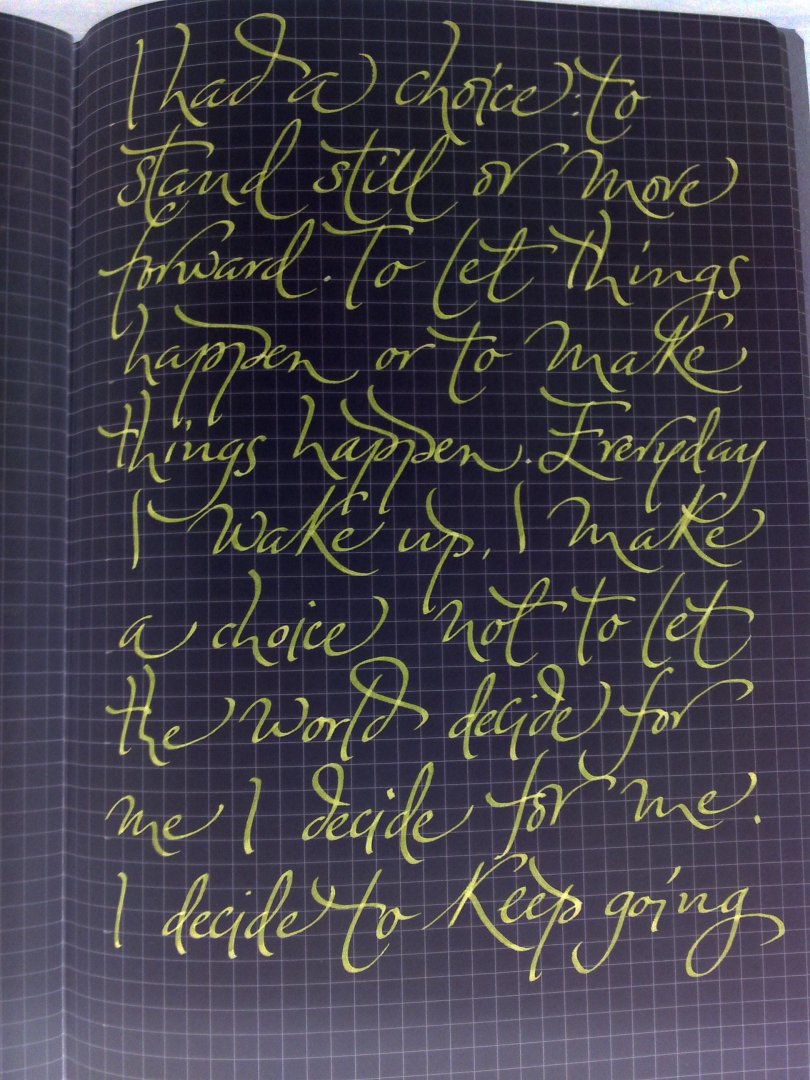 I had a choice: to
stand still or move
forward. To let things
happen or to make
things happen. Everyday
I wake up, I make
a choice not to let
the world decide for
me I decide for me.
I decide to keep going